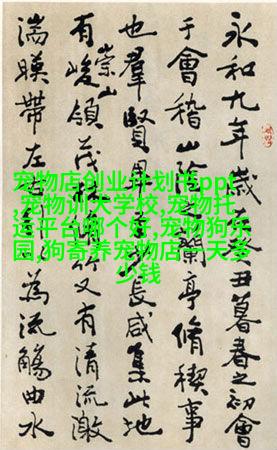 永和九年歲癸丑暮春之初會
于會稽山陰之蘭亭脩稧事
也羣賢畢長咸集此地
有崇山峻領茂林竹又有清流激
湍暎帶左為流觴曲水
宠物店创业计划书ppt,
宠物训犬学校,宠物托
运平台哪个好,宠物狗乐
园,狗寄养宠物店一天多
少钱